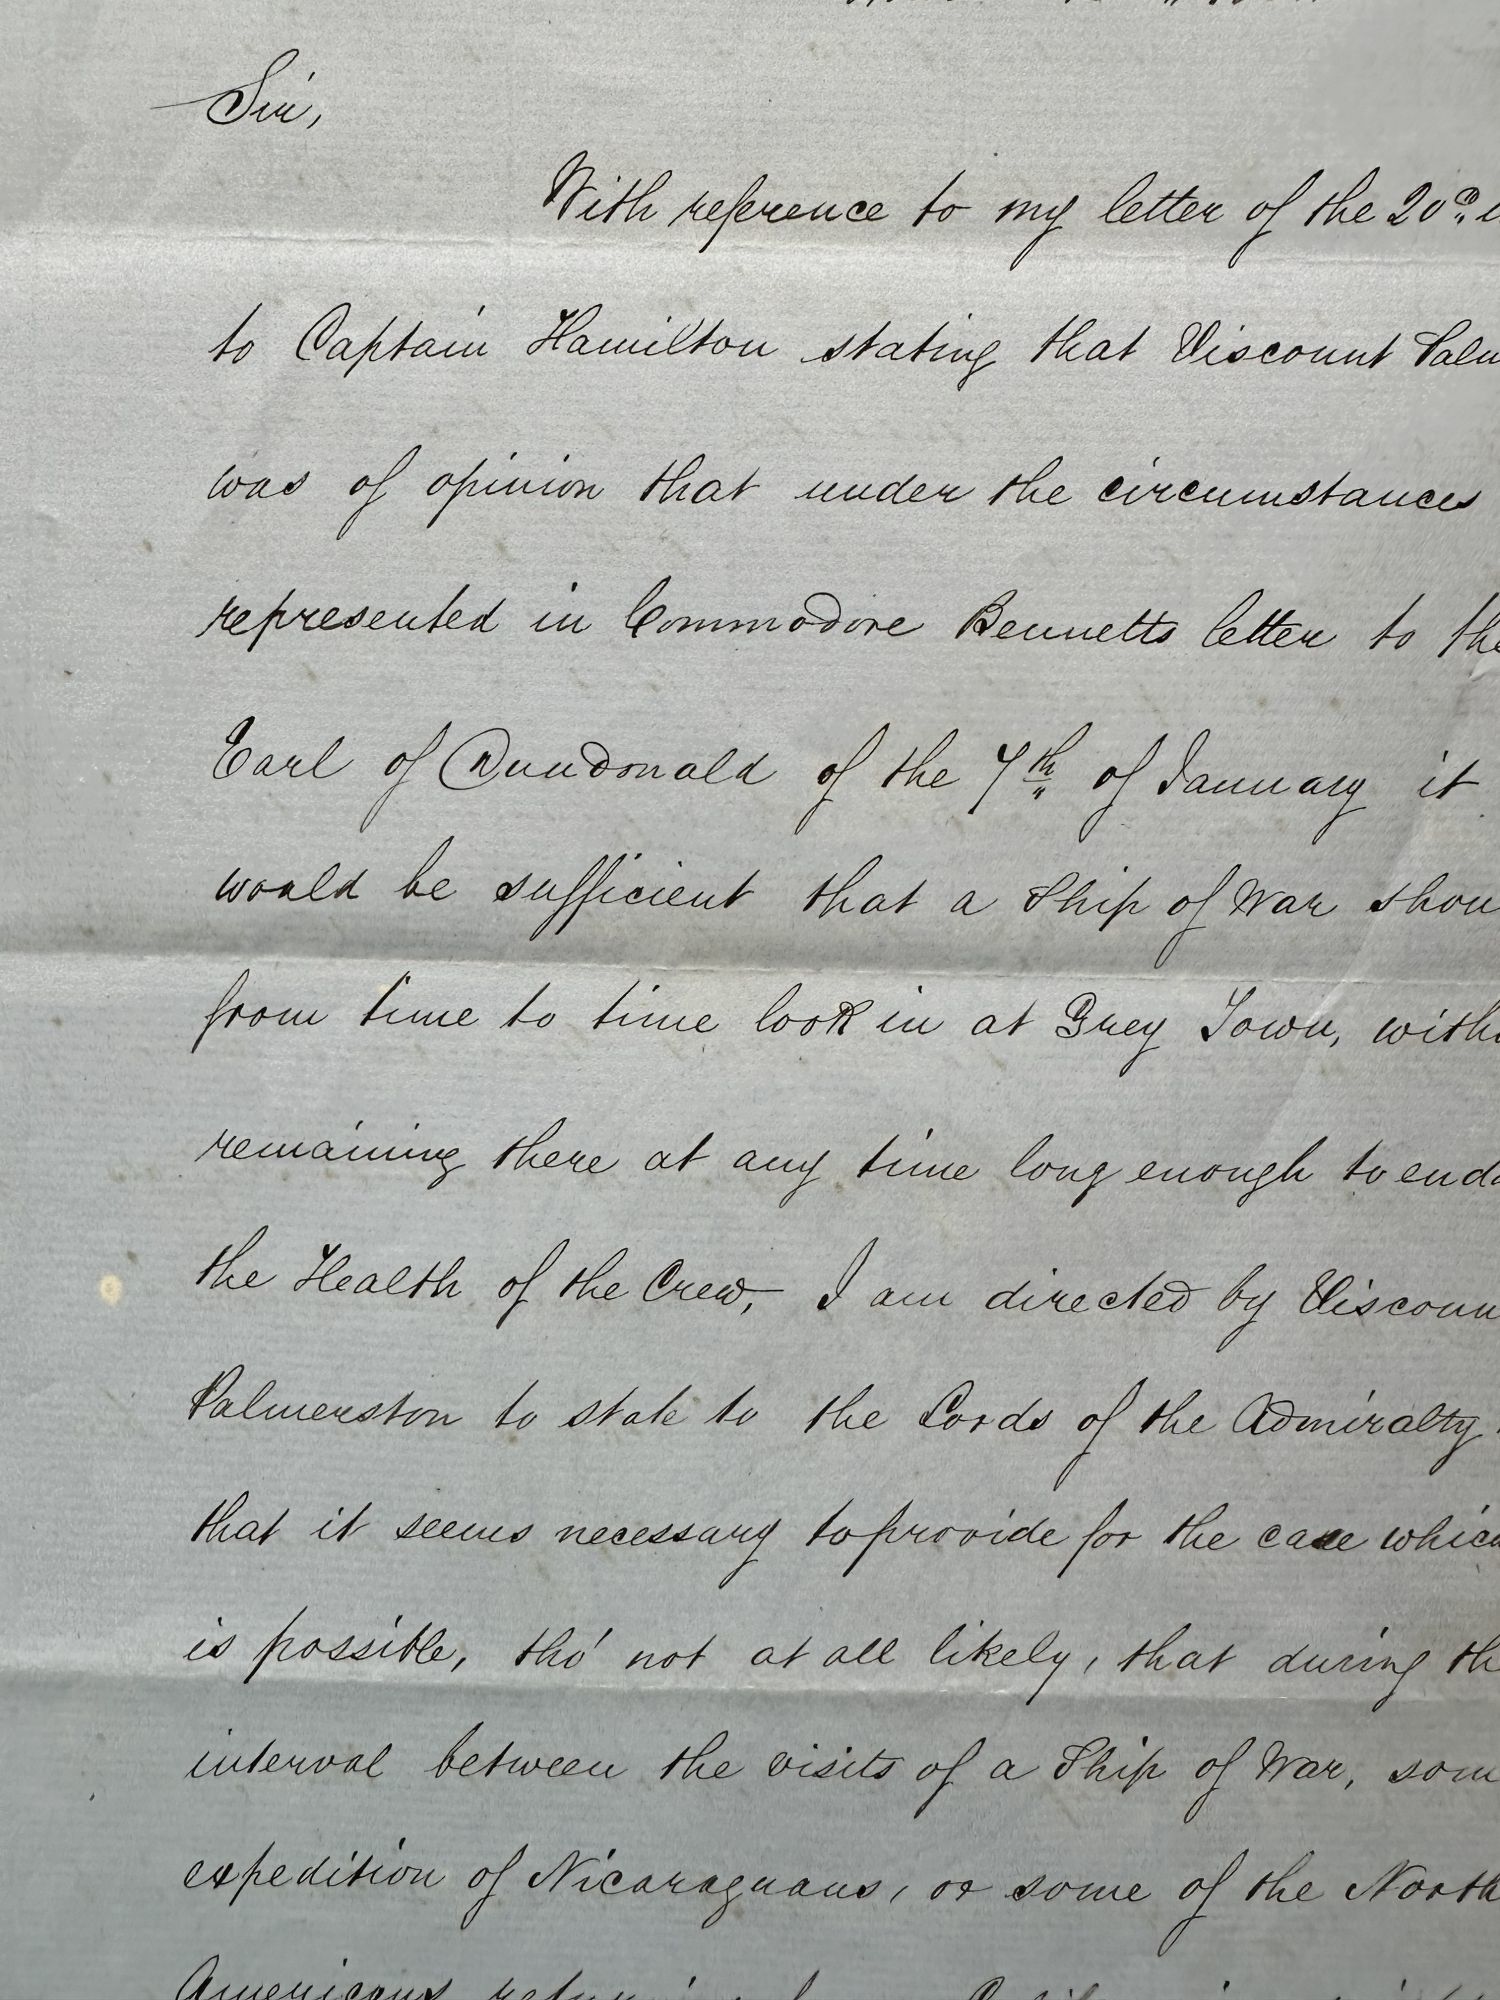 Sir,
With reference to my letter of the 20th
to Captain Hamilton stating that Viscount Palm
was of opinion that under the circumstances
represented in Commodore Bennetts letter to the
Earl of Dundonald of the 7th of January it
would be sufficient that a Ship of War shou
from time to time look in at Grey Town, with
remaining there at any time long enough to end
the Health of the Crew, I am directed by Viscoun
Palmerston to state to the Lords of the Admiralty
that it seems necessary to provide for the case which
is possible, tho' not at all likely, that during th
interval between the visits of a Ship of War, som
expedition of Nicaraguans, or some of the North
Americans